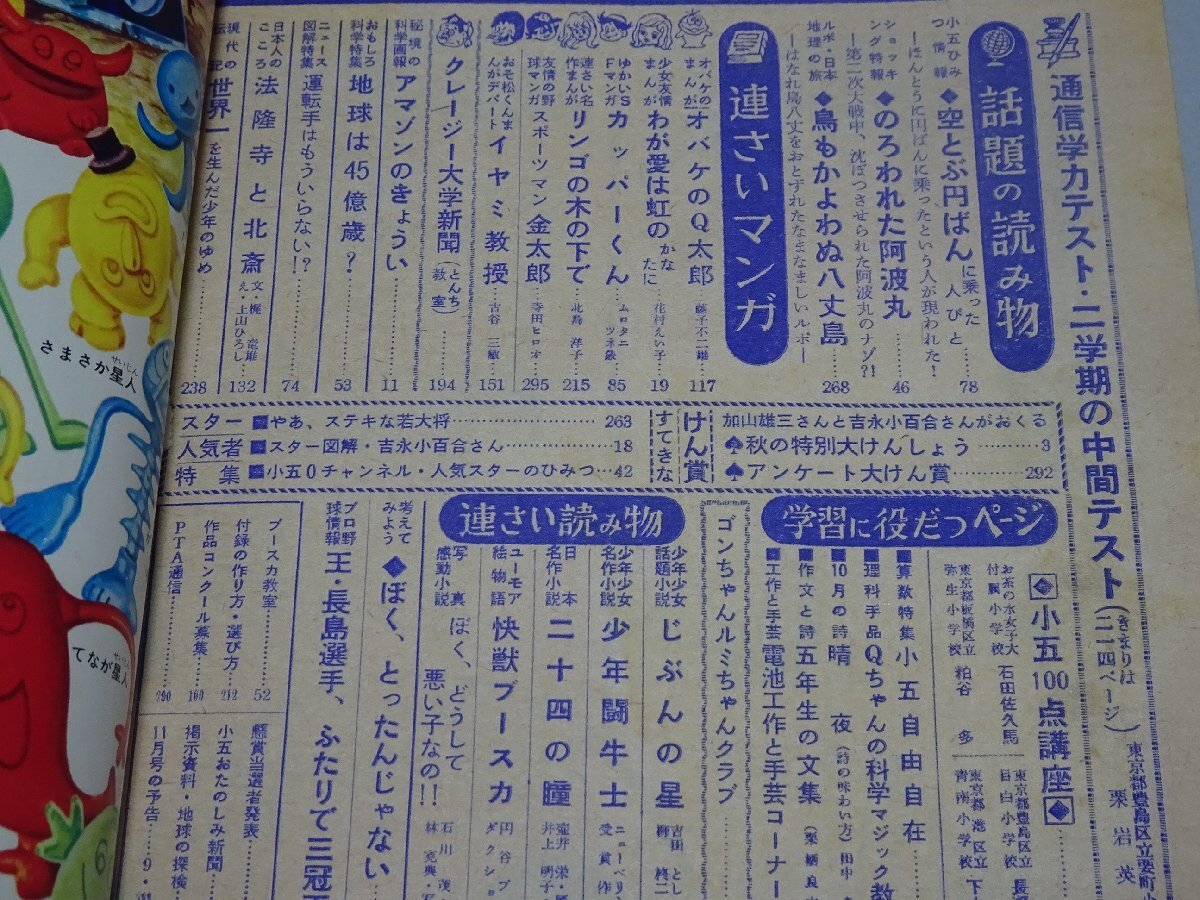 通信学力テスト・二学期の中間テスト(きまりは二四ページ)
東京都豊島区立要町小
栗岩英
話題の読み物
小五ひみつ情報◆空とぶ円ばんに乗った人びと 78
―ほんとうに円ばんに乗ったという人が現われた!
ショッキング特報◆のろわれた阿波丸 46
―第二次大戦中、沈ぼつさせられた阿波丸のナゾ?!
ルポ・日本地理の旅◆鳥もかよわぬ八丈島 268
―はなれ島八丈をおとずれたなまなましいルポ―
連さいマンガ
オバケのまんが オバケのQ太郎 藤子不二雄 117
少女友情まんが わが愛は虹のかなたに 花村えい子 19
ゆかいSFマンガ カッパーくん ムロタニツネ象 85
連さい名作まんが リンゴの木の下で 北島洋子 215
友情の野球マンガ スポーツマン金太郎 寺田ヒロオ 295
おそ松くんまんがデパート イヤミ教授 古谷三敏 151
クレージー大学新聞(とんち教室) 194
秘境の科学画報 アマゾンのきょうい 11
おもしろ科学特集 地球は45億歳? 53
ニュース図解特集 運転手はもういらない!! 74
日本人のこころ 法隆寺と北斎 文・梶竜雄 え・上山ひろし 132
現代の伝記 世界一を生んだ少年のゆめ 238
スター人気者特集
やあ、ステキな若大将 263
スター図解・吉永小百合さん 18
小五0チャンネル・人気スターのひみつ 42
すてきなけん賞
加山雄三さんと吉永小百合さんがおくる
♠秋の特別大けんしょう 3
♠アンケート大けん賞 292
学習に役だつページ
◆小五100点講座◆
お茶の水女子大付属小学校 石田佐久馬
東京都板橋区立弥生小学校 粕谷多
東京都豊島区立目白小学校 長
東京都港区立青南小学校 下
■算数特集 小五自由自在
■理科手品 Qちゃんの科学マジック教
■10月の詩 晴夜(詩の味わい方)田中
■作文と詩 五年生の文集(栗栖良
■工作と手芸 電池工作と手芸コーナー
ゴンちゃんルミちゃんクラブ
連さい読み物
少年少女話題小説 じぶんの星 吉田とし 柳柊二
少年少女名作小説 少年闘牛士 ニューベリ 受賞作
日本名作小説 二十四の瞳 壷井栄・ 井上明子
ユーモア絵物語 快獣ブースカ 円谷プ ダクショ
写真感動小説 ぼく、どうして悪い子なの!! 石川茂 林克典・写
考えてみよう ◆ぼく、とったんじゃない
プロ野球情報 王・長島選手、ふたりで三冠王
ブースカ教室 52
付録の作り方・選び方 212
作品コンクール募集 160
PTA通信 290
懸賞当選者発表
小五おたのしみ新聞
掲示資料・地球の探検
11月号の予告 9・
さまさか星人
せいじん
てなが星人
せいじん